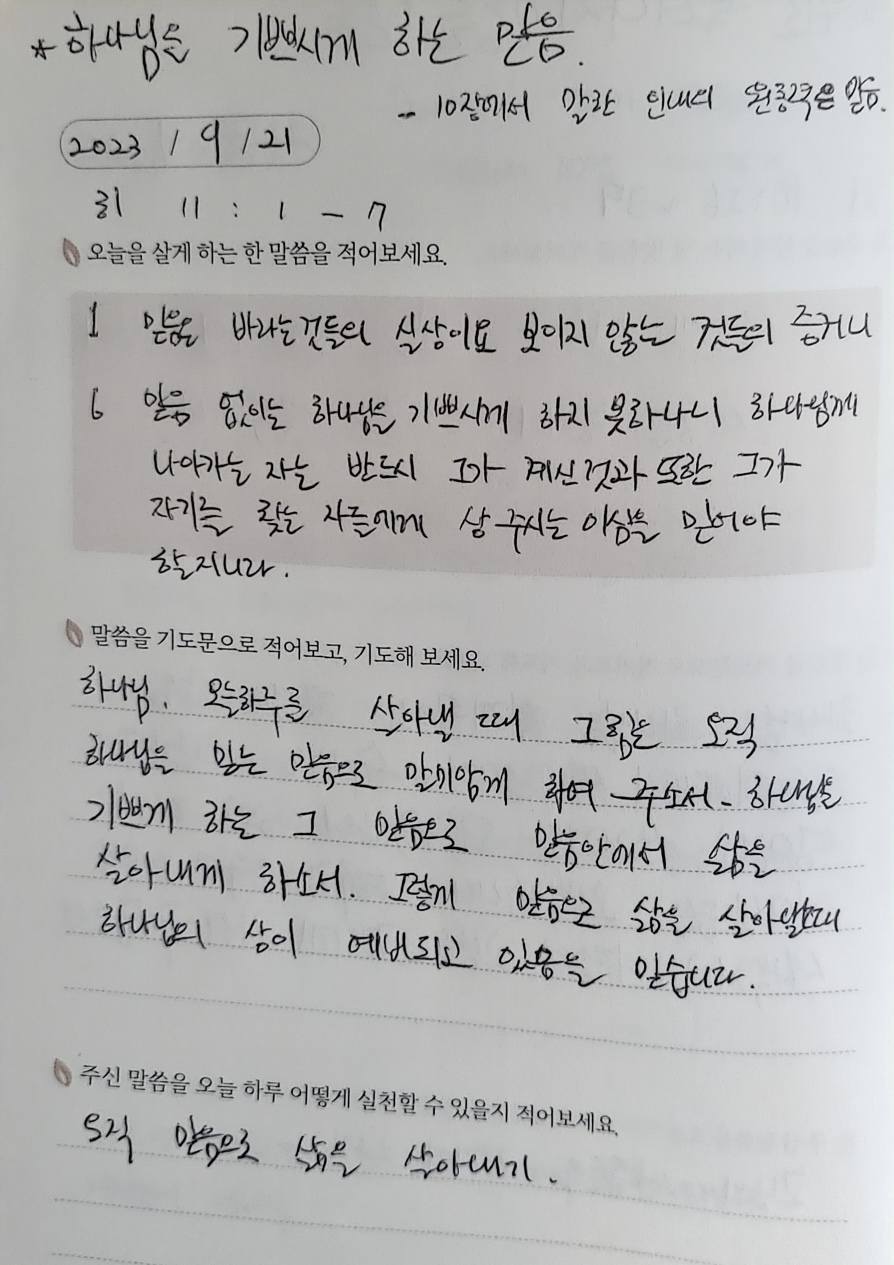 * 하나님을 기쁘시게 하는 믿음.
- 10장에서 말한 인내의 원동력은 믿음.
2023 / 9 / 21
히 11 : 1 - 7
오늘을 살게 하는 한 말씀을 적어보세요.
1 믿음은 바라는것들의 실상이요 보이지 않는 것들의 증거니
6 믿음 없이는 하나님을 기쁘시게 하지 못하나니 하나님께
나아가는 자는 반드시 그가 계신것과 또한 그가
자기를 찾는 자들에게 상 주시는 이심을 믿어야
할지니라.
말씀을 기도문으로 적어보고, 기도해 보세요.
하나님. 오늘하루를 살아낼 때 그 힘은 오직
하나님을 믿는 믿음으로 말미암게 하여 주소서- 하나님을
기쁘게 하는 그 믿음으로 믿음안에서 삶을
살아내게 하소서. 그렇게 믿음으로 삶을 살아낼때
하나님의 상이 예비되고 있음을 믿습니다.
주신 말씀을 오늘 하루 어떻게 실천할 수 있을지 적어보세요.
오직 믿음으로 삶을 살아내기.